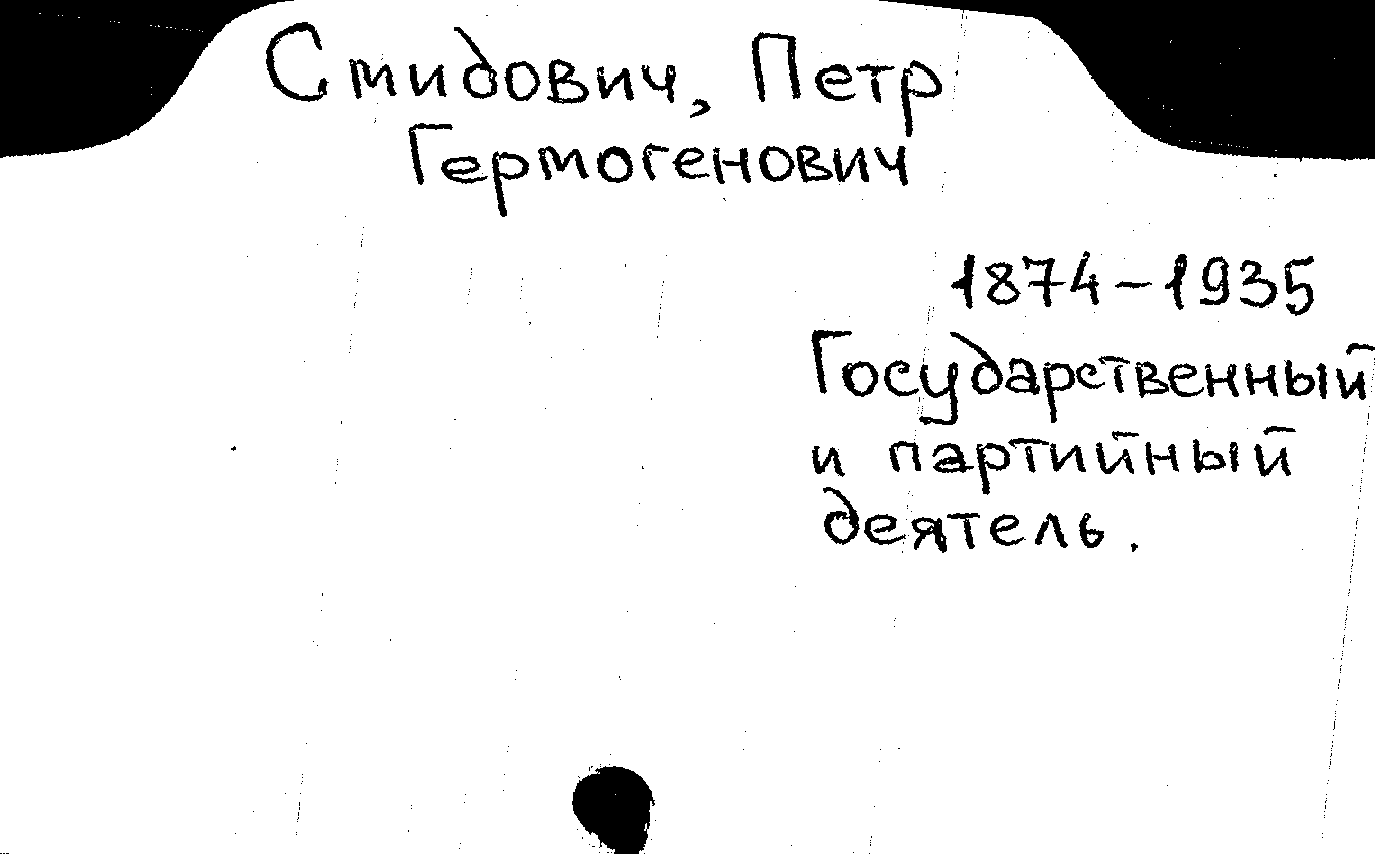 Смидович, Петр
Гермогенович
1874-1935
Государственный
и партийный
деятель.